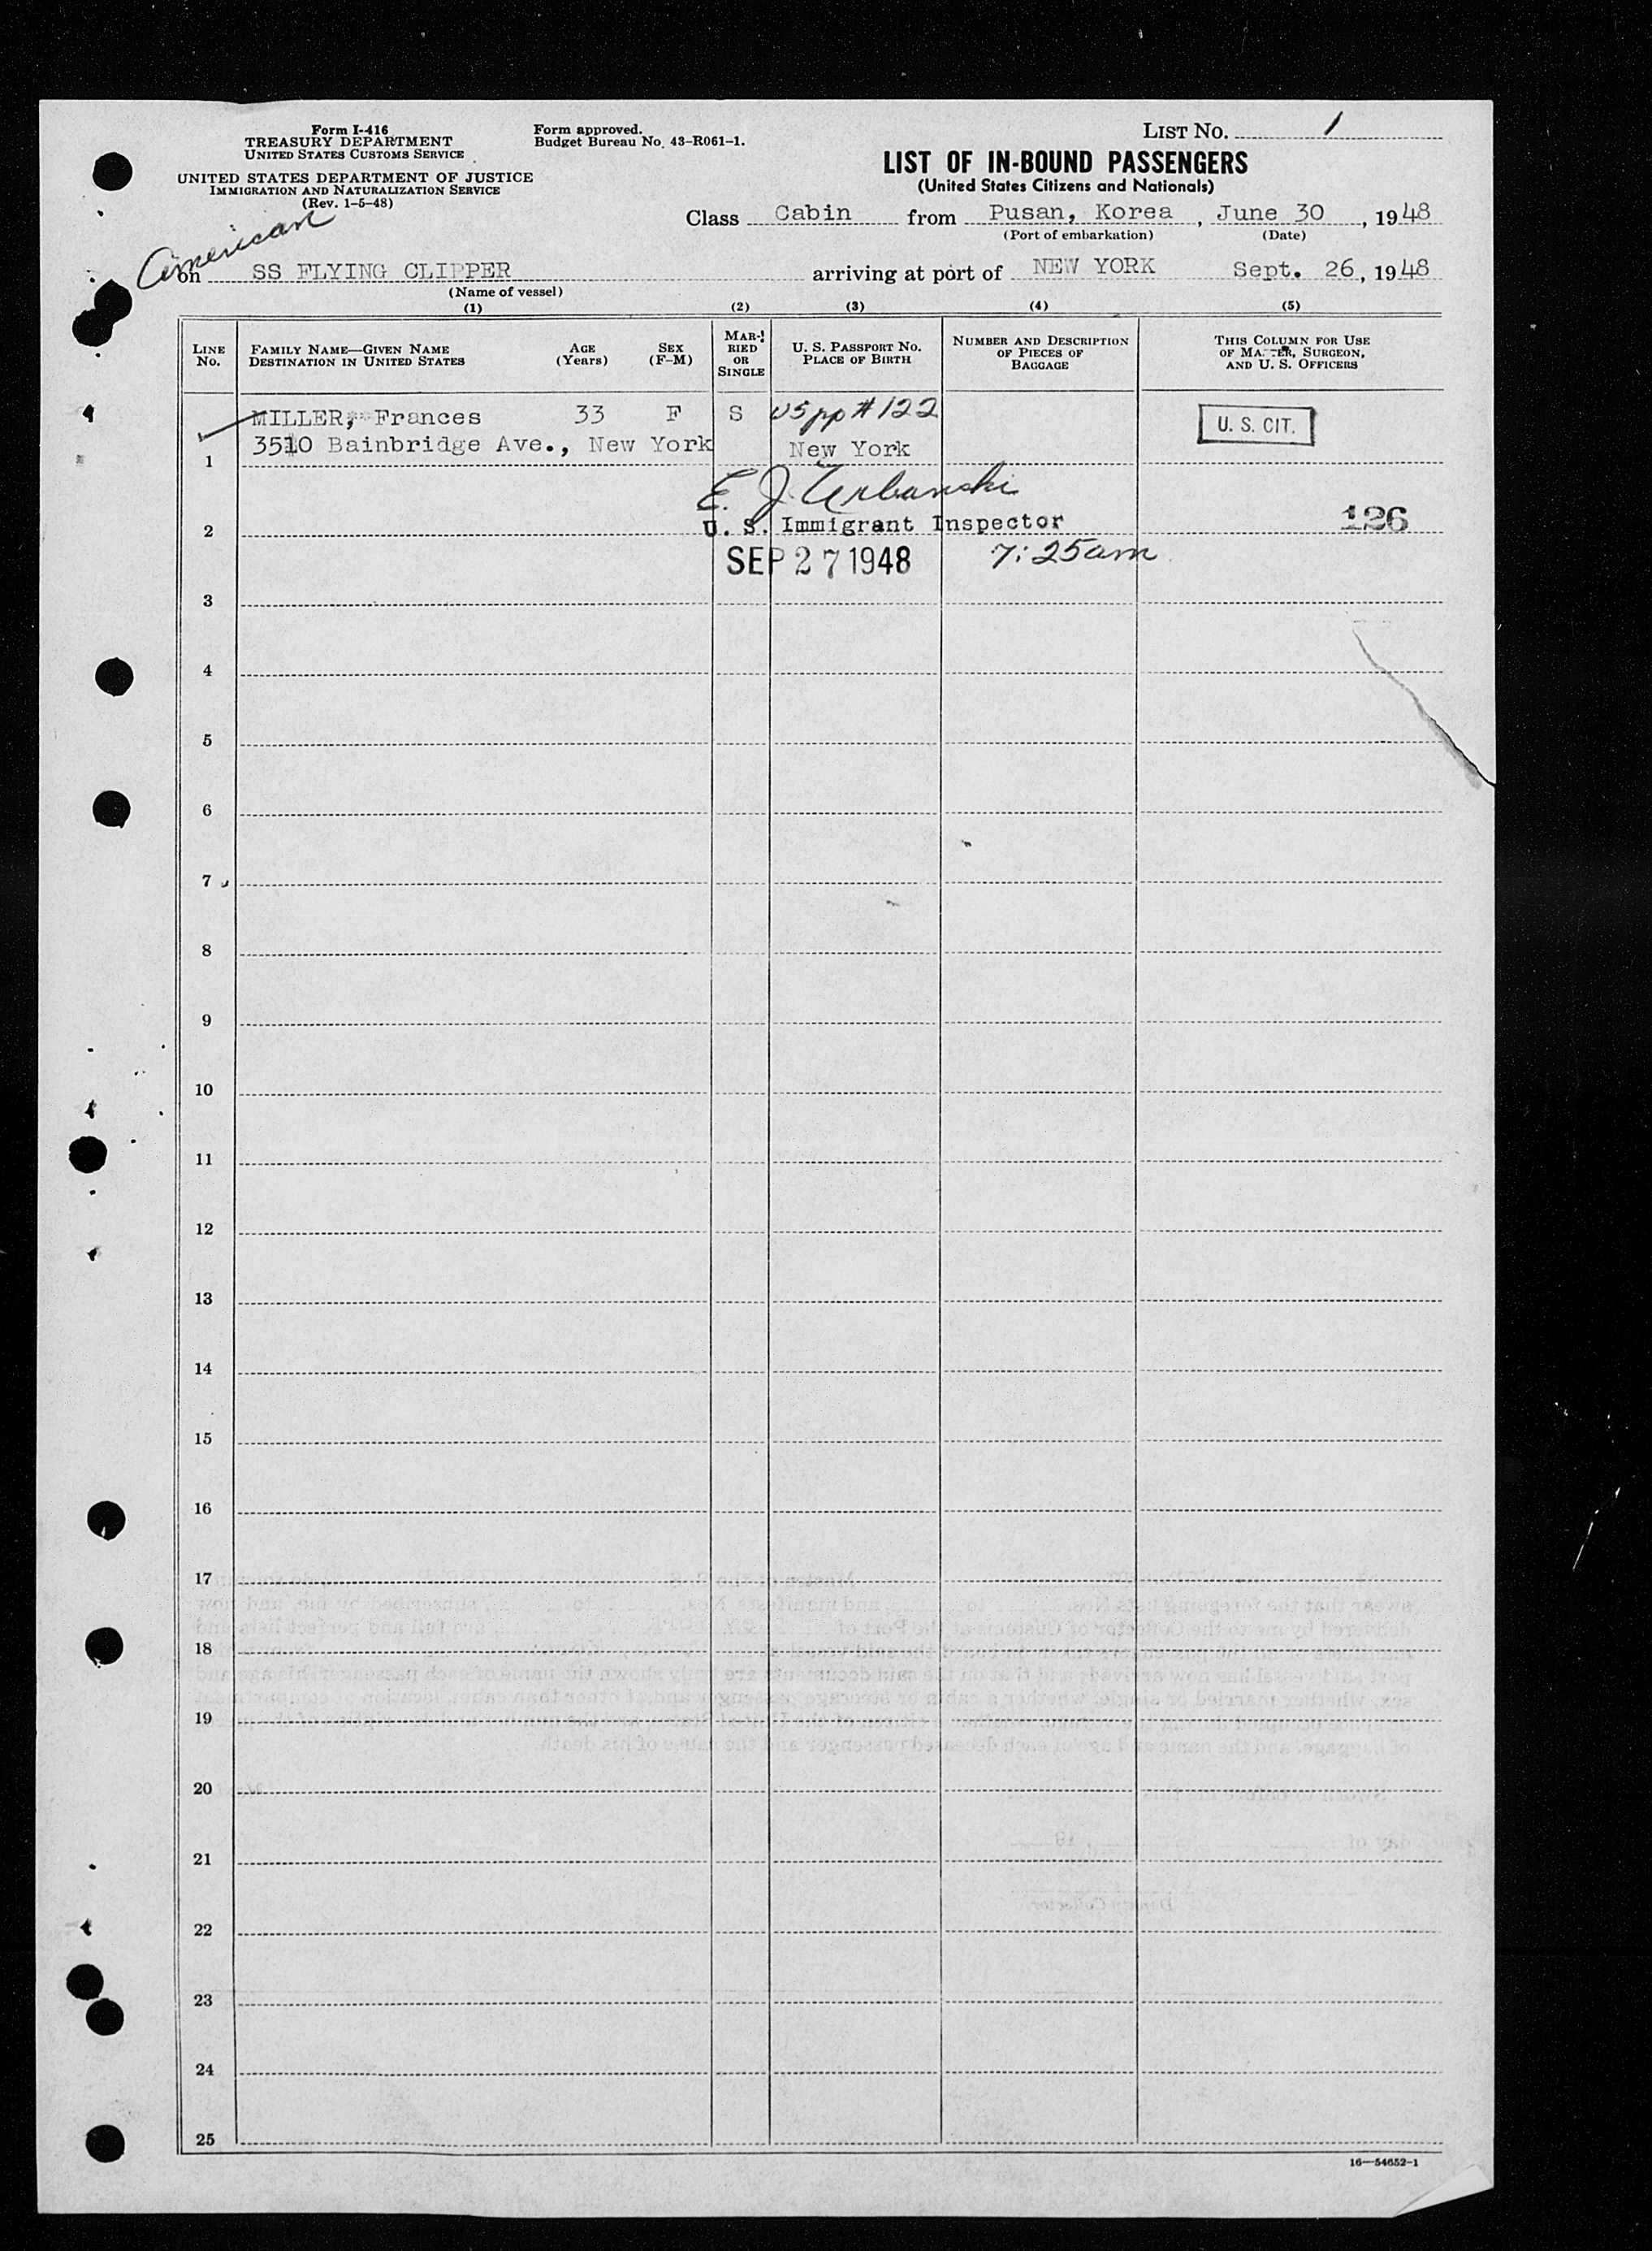 Form I-416
TREASURY DEPARTMENT
UNITED STATES CUSTOMS SERVICE
UNITED STATES DEPARTMENT OF JUSTICE
IMMIGRATION AND NATURALIZATION SERVICE
(Rev. 1-5-48)
Form approved.
Budget Bureau No. 43-R061-1.
LIST NO. 1
LIST OF IN-BOUND PASSENGERS
(United States Citizens and Nationals)
Class Cabin from Pusan, Korea, June 30, 1948
(Port of embarkation) (Date)
American
on SS FLYING CLIPPER arriving at port of NEW YORK Sept. 26, 1948
(Name of vessel)
(1) (2) (3) (4) (5)
LINE NO.
FAMILY NAME—GIVEN NAME
DESTINATION IN UNITED STATES
AGE (Years)
SEX (F-M)
MARRIED OR SINGLE
U. S. PASSPORT NO.
PLACE OF BIRTH
NUMBER AND DESCRIPTION
OF PIECES OF
BAGGAGE
THIS COLUMN FOR USE
OF MASTER, SURGEON,
AND U. S. OFFICERS
MILLER, Frances 33 F S US pp # 122 U. S. CIT.
3510 Bainbridge Ave., New York New York
1
E. J. Urbanski
U. S. Immigrant Inspector 126
2
SEP 27 1948 7:25am
3
4
5
6
7
8
9
10
11
12
13
14
15
16
17
18
19
20
21
22
23
24
25
16—54652-1